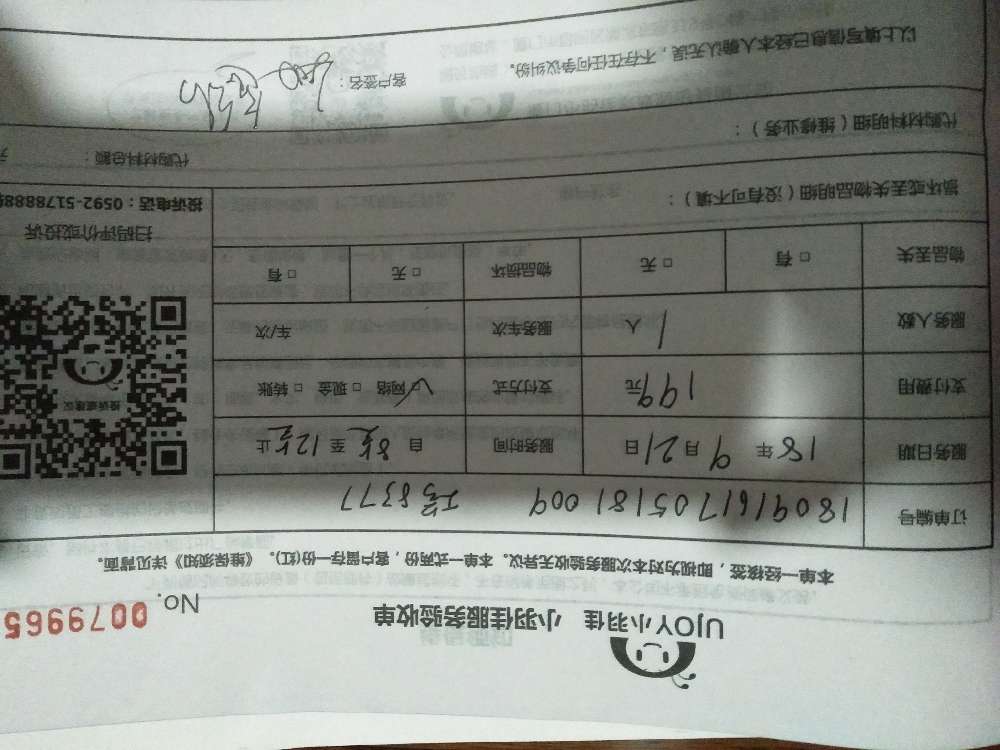 UJOY小羽佳 小羽佳服务验收单
No. 0079965
本单一经接签，即视为对本次服务验收无异议。本单一式两份，客户留存一份(红)。《维保须知》详见背面。
订单编号 180916170518 1009 工号8377
服务日期 18年 9月21日 服务时间 自 8点 至 12点 止
支付费用 199元 支付方式 ☑网络 □现金 □转账
服务人数 1 人 服务车次 车/次
物品丢失 □有 □无 物品损坏 □无 □有
投诉或建议
扫码评价或投诉
投诉电话：0592-5178888
损坏或丢失物品明细（没有可不填）：
代购材料明细（维修业务）：
代购材料总额：
以上填写信息已经本人确认无误，不存在任何争议纠纷。
客户签名：